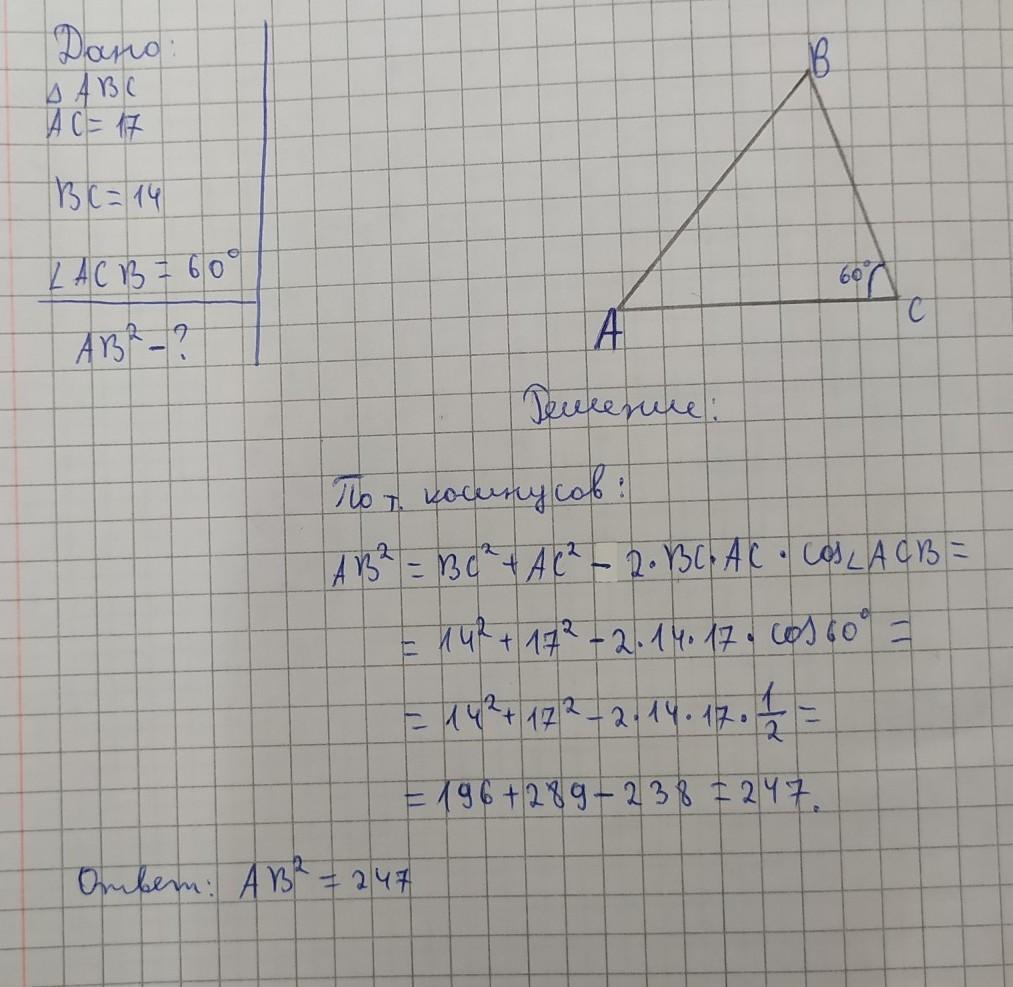 Дано:
△ ABC
AC = 17
BC = 14
∠ACB = 60°
AB² - ?
B
60°
A
C
Решение:
По т. косинусов:
AB² = BC² + AC² - 2·BC·AC · cos∠ACB =
= 14² + 17² - 2·14·17· cos60° =
= 14² + 17² - 2·14·17· 1/2 =
= 196 + 289 - 238 = 247.
Ответ: AB² = 247